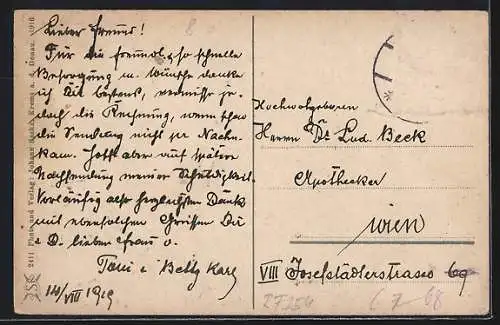 Lieber Freund!
Für die freundl. & so schnelle
Besorgung m. Wünsche danke
ich Dir bestens, vermisse je-
doch die Rechnung, wenn schon
die Sendung nicht per Nachn.
kam. Hoffe aber auf spätere
Nachsendung meiner Schuldigkeit.
Vorläufig also herzlichsten Dank
mit ebensolchen Grüssen Dir
& D. lieben Frau v.
Toni & Betty Karl
14/VIII 1919
2411 Photo und Verlag: Johann Krems a. d. Donau. 1916
Hochwohlgeboren
Herrn Dr Lud. Beck
Apotheker
Wien
VIII Josefstädterstrasse 69
27254